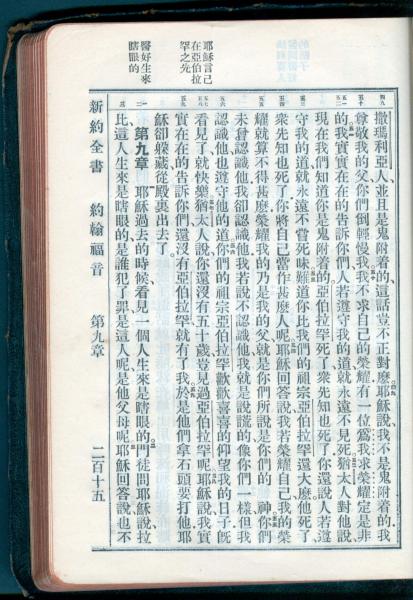 耶穌言己
在亞伯拉
罕之先
醫好生來
瞎眼的
四九
撒瑪利亞人、並且是鬼附着的這話豈不正對麼耶穌說我不是鬼附着的我
五十
尊敬我的父你們倒輕慢我我不求自己的榮耀有一位爲我求榮耀定是非
五一
五二
的我實實在在的告訴你們人若遵守我的道就永遠不見死猶太人對他說
現在我們知道你是鬼附着的亞伯拉罕死了衆先知也死了你還說人若遵
五三
守我的道就永遠不嘗死味難道你比我們的祖宗亞伯拉罕還大麼他死了
五四
衆先知也死了你將自己當作甚麼人呢耶穌回答說我若榮耀自己我的榮
耀就算不得甚麼榮耀我的乃是我的父就是你們所說是你們的 神你們
五五
未曾認識他我卻認識他我若說不認識他我就是說謊的像你們一樣但我
五六
認識他也遵守他的道你們的祖宗亞伯拉罕歡歡喜喜的仰望我的日子旣
五七
五八
看見了就快樂猶太人說你還沒有五十歲豈見過亞伯拉罕呢耶穌說我實
五九
實在在的告訴你們還沒有亞伯拉罕就有了我於是他們拿石頭要打他耶
穌卻躲藏從殿裏出去了。
一
二
第九章 耶穌過去的時候看見一個人生來是瞎眼的門徒問耶穌說拉
三
比這人生來是瞎眼的是誰犯了罪是這人呢是他父母呢耶穌回答說也不
新約全書 約翰福音 第九章 二百十五